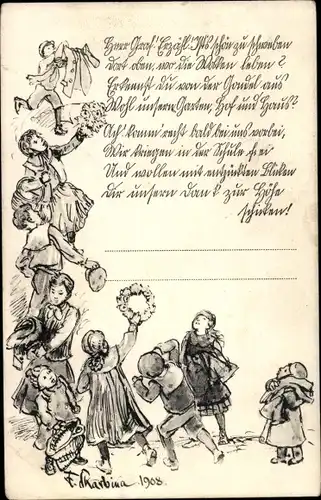 Herr Graf! Erzähl! Ists schön zu schweben
dort oben, wo die Wolken leben?
Erkennst du von der Gondel aus
Wohl unsern Garten, Hof und Haus?
Ach komm recht bald bei uns vorbei,
Wir kriegen in der Schule frei
Und wollen mit entzückten Blicken
Dir unsern Dank zur Höhe
schicken!
F. Skarbina 1908.